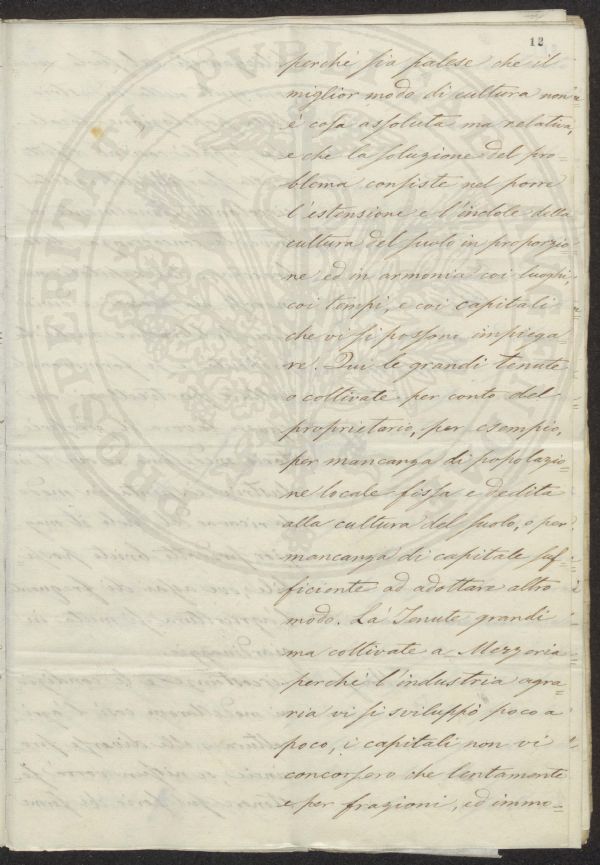 12
perché sia palese che il
miglior modo di cultura non
è cosa assoluta ma relativa,
e che la soluzione del pro=
blema consiste nel porre
l'estensione e l'indole della
cultura del suolo in proporzio
ne ed in armonia coi luoghi,
coi tempi, e coi capitali
che vi si possono impiega
re. Qui le grandi tenute
o coltivate per conto del
proprietario, per esempio,
per mancanza di popolazio=
ne locale fissa e dedita
alla cultura del suolo, o per
mancanza di capitale suf=
ficiente ad adottare altro
modo. Là Tenute grandi
ma coltivate a Mezzeria
perché l'industria agra=
ria vi si sviluppò poco a
poco, i capitali non vi
concorsero che lentamente
e per frazioni, ed immo=